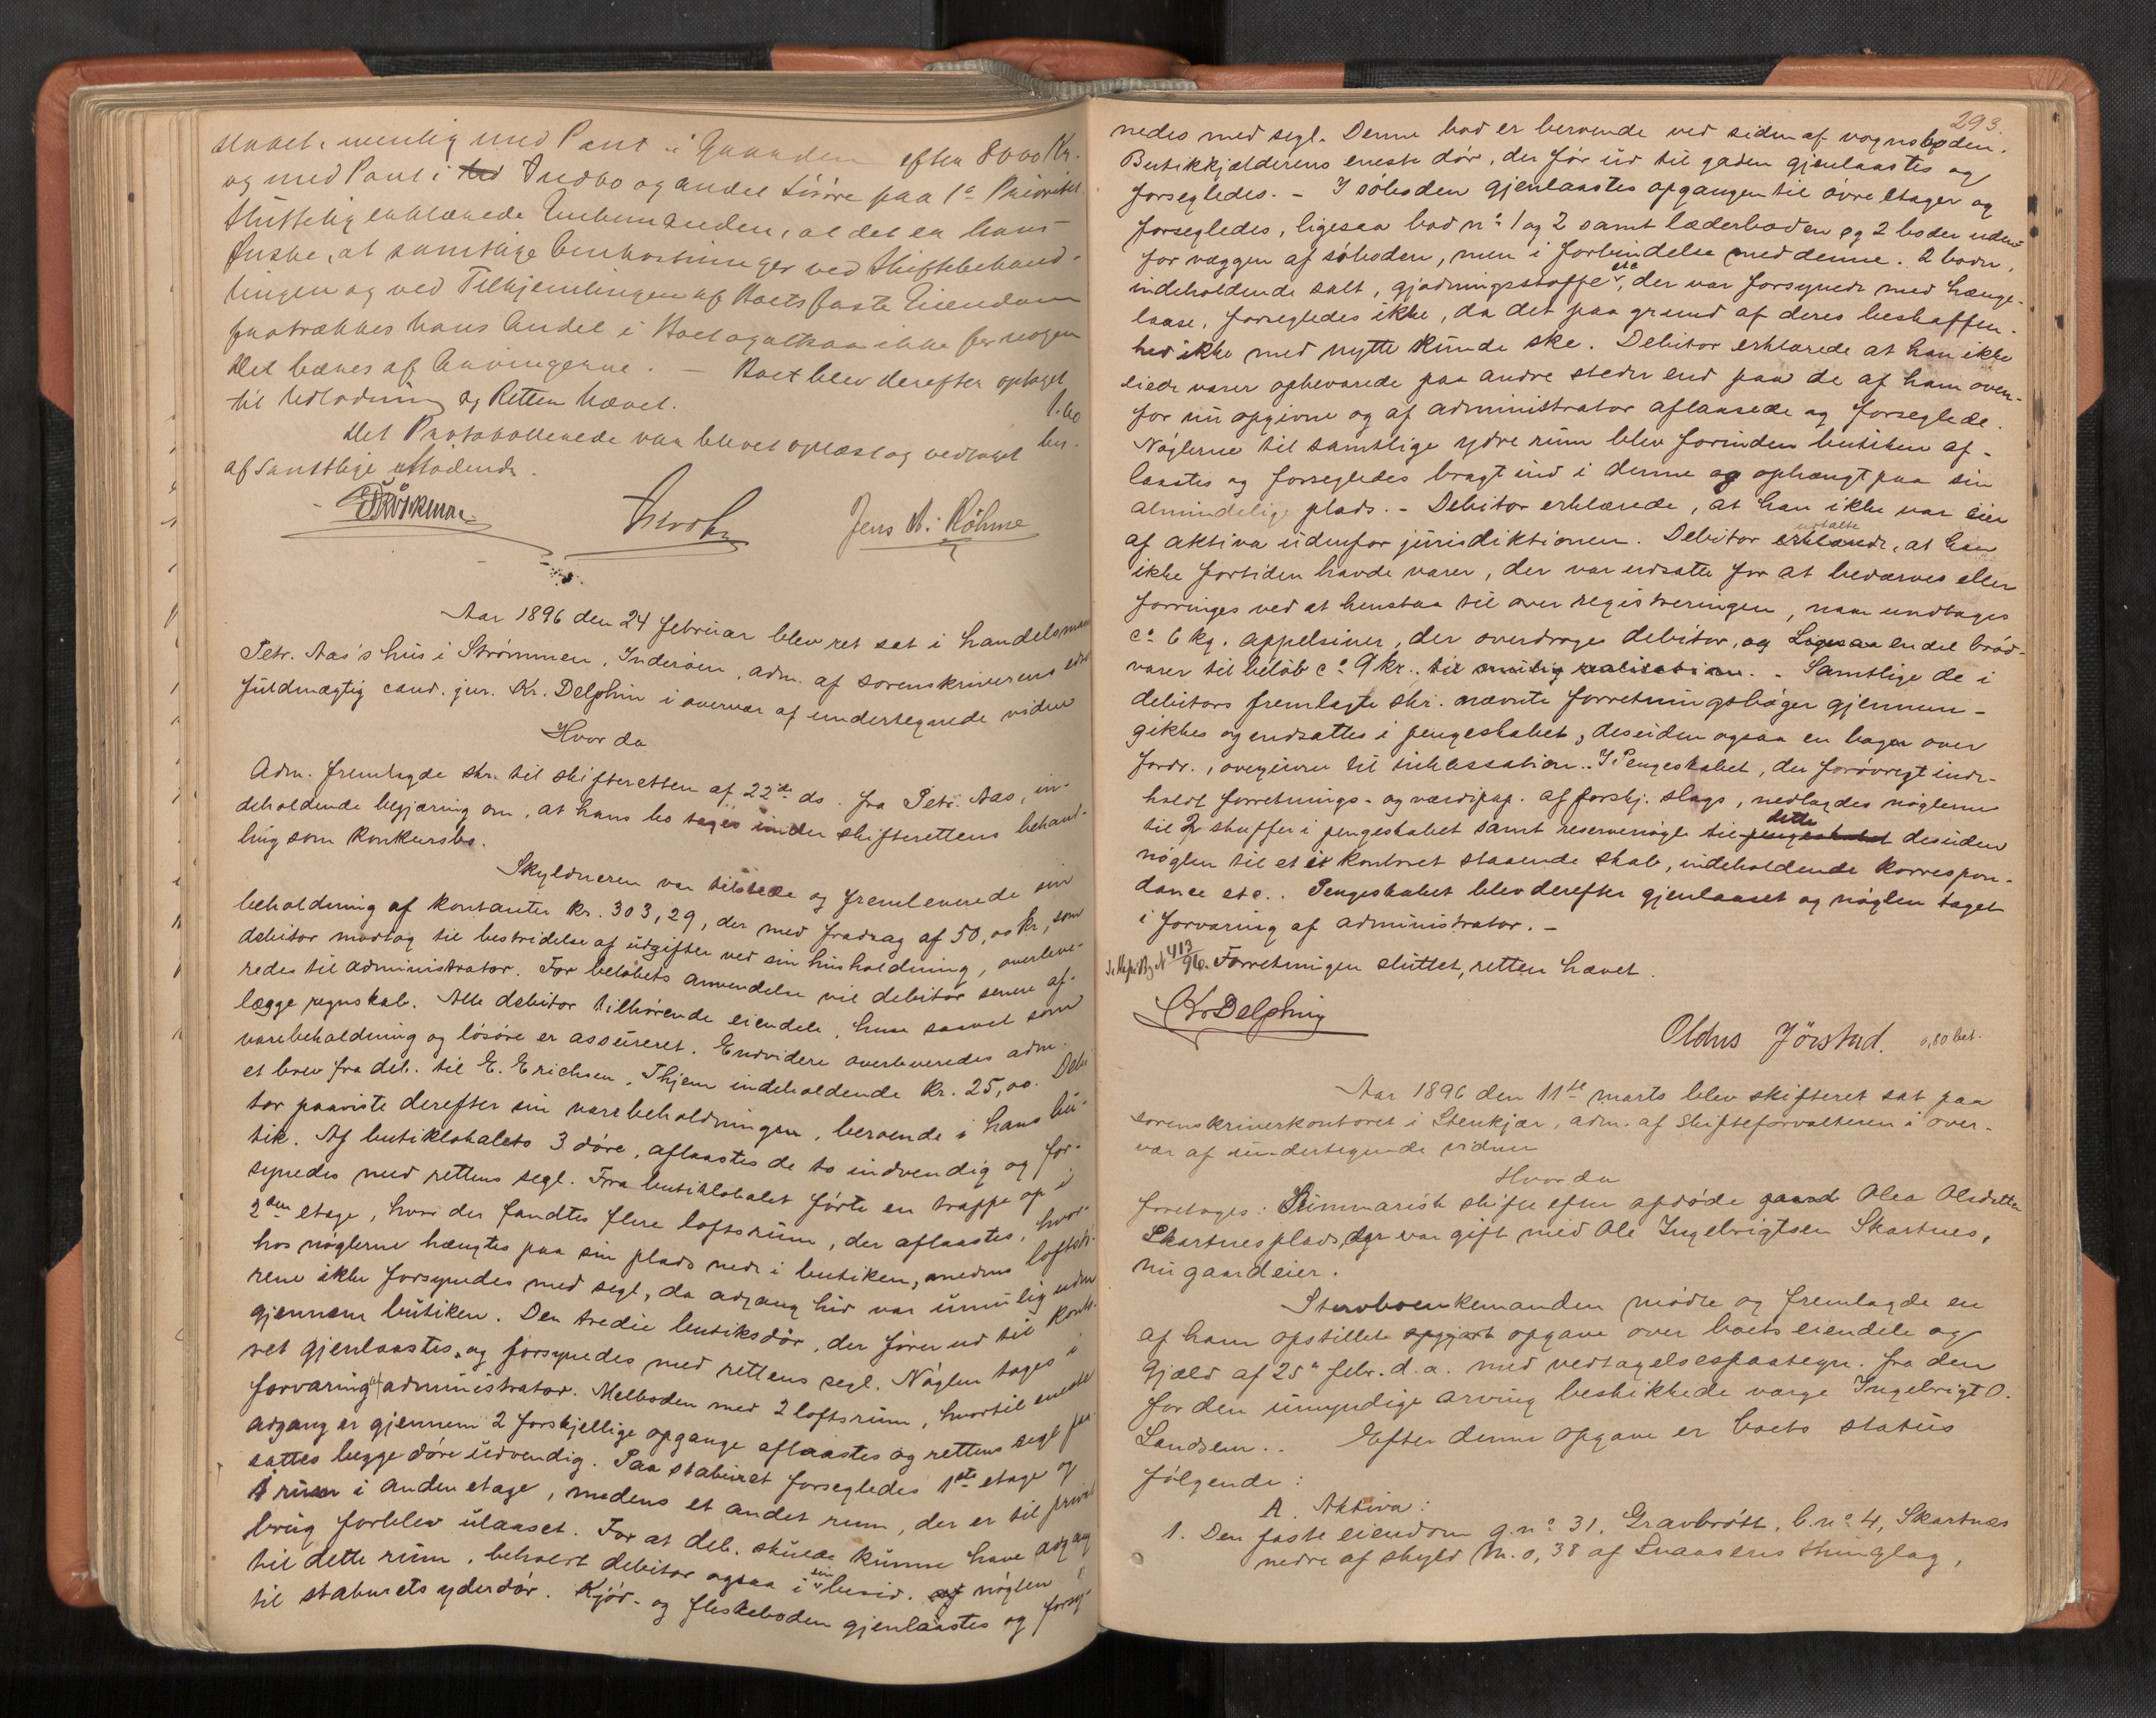 skabet, nemlig med Pant i Gaarden efter 8000 Kr.
og med Pant i Indbo og andet Løsøre paa 1ª Prioritet.
Sluttelig erklærede Enkemanden, at det er hans
Ønske, at samtlige Omkostninger ved Skiftebehand-
lingen og ved Tilhjemlingen af Boets faste Eiendom
fratrækkes hans Andel i Boet og altsaa ikke for nogen
Del bæres af Arvingerne. — Boet blev derefter optaget
til Udlodning og Retten hævet.
1.60
Det Protokollerede var blevet oplæst og vedtaget
bet.
af samtlige Mødende.
Jens A. Röhme
Aar 1896 den 24 februar blev ret sat i handelsmand
Petr. Aas's hus i Strømmen, Inderøen, adm. af sorenskriverens edsv.
fuldmægtig cand. jur. Kr. Delphin i overvær af undertegnede vidne
Hvor da
Adm. fremlagde skr. til skifteretten af 22de ds. fra Petr. Aas, in-
deholdende begjæring om, at hans bo tages under skifterettens behand-
ling som konkursbo.
Skyldneren var tilstede og fremleverede sin
beholdning af kontanter kr. 303,29, der med fradrag af 50,00 kr, som
debitor modtog til bestridelse af udgifter ved sin husholdning, overleve-
redes til administrator. For beløbets anvendelse vil debitor senere af-
lægge regnskab. Alle debitor tilhørende eiendele, huse saavel som
varebeholdning og løsøre er assureret. Endvidere overleveredes adm.
et brev fra deb. til E. Erichsen, Thjem indeholdende kr. 25,00. Debi-
tor paaviste derefter sin varebeholdningen, beroende i hans bu-
tik. Af butiklokalets 3 døre, aflaastes de to indvendig og for-
synedes med rettens segl. Fra butiklokalet førte en trappe op i
2den etage, hvor der fandtes flere loftsrum, der aflaastes, hvor-
hos nøglerne hængtes paa sin plads nede i butiken, medens loftsdø-
rene ikke forsynedes med segl, da adgang hid var umulig uden
gjennem butiken. Den tredie butiksdør, der fører ud til konto-
ret gjenlaastes og forsynedes med rettens segl. Nøglen toges i
forvaring af administrator. Melboden med 2 loftsrum, hvortil eneste
adgang er gjennem 2 forskjellige opgange aflaastes og rettens segl paa-
sattes begge døre udvendig. Paa staburet forsegledes 1ste etage og
1 rum i anden etage, medens et andet rum, der er til privat
brug forblev ulaaset. For at deb. skulde kunne have adgang
til dette rum, beholdt debitor ogsaa i sin besid. nøglen
til staburets yderdør. Kjød- og fleskeboden gjenlaastes og forsy-
293.
nedes med segl. Denne bod er beroende ved siden af vognboden.
Butikkjælderens eneste dør, der før ud til gaden gjenlaastes og
forsegledes. – I søboden gjenlaastes opgangen til øvre etager og
forsegledes, ligesaa bod nº 1 og 2 samt læderboden og 2 boder uden-
for væggen af søboden, men i forbindelse med denne. 2 boder,
indeholdende salt, gjødningsstoffe etc, der var forsynede med hænge-
laase, forsegledes ikke, da det paa grund af deres beskaffen-
hed ikke med nytte kunde ske. Debitor erklærede at han ikke
eiede varer opbevarede paa andre steder end paa de af ham oven-
for nu opgivne og af administrator aflaasede og forseglede.
Nøglerne til samtlige ydre rum blev forinden butiken af-
laastes og forsegledes bragt ind i denne og ophængt paa sin
almindelige plads. – Debitor erklærede, at han ikke var eier
af aktiva udenfor jurisdiktionen. Debitor udtalte, at han
ikke fortiden havde varer, der var udsatte for at bedærves eller
forringes ved at henstaa til over registreringen, naar undtages
cª 6 kg. appelsiner, der overdroges debitor, og Ligesaa en del brød-
varer til beløb cª 9 kr. til realisation. – Samtlige de i
debitors fremlagte skr. nævnte forretningsbøger gjennem-
gikkes og indsattes i pengeskabet, desuden ogsaa en bog over
fordr., overgivne til inkassation. I Pengeskabet, der forøvrigt inde-
holdt forretnings- og værdipap. af forskj. slags, nedlagdes nøglerne
til 2 skuffer i pengeskabet samt reservenøgle til dette desuden
nøglen til et i kontoret staaende skab, indeholdende korrespon-
dance etc.. Pengeskabet blev derefter gjenlaaset og nøglen taget
i forvaring af administrator. –
413/96. Forretningen sluttet, retten hævet.
Kr Delphin
Oldus Jørstad. 0,80 bet.
Aar 1896 den 11te marts blev skifteret sat paa
sorenskriverkontoret i Stenkjær, adm. af Skifteforvalteren i over-
vær af undertegnede vidner
Hvor da
foretoges: Summarisk skifte efter afdøde Olea Olsdatter
Skartnesplads, der var gift med Ole Ingebrigtsen Skartnes,
nu gaardeier.
Stervboenkemanden mødte og fremlagde en
af ham opstillet opgave over boets eiendele og
gjæld af 25ª febr. d.a. med vedtagelsespaategn. fra den
for den umyndige arving beskikkede værge Ingebrigt O.
Landsem.. Efter denne opgave er boets status
følgende:
A. Aktiva:
1. Den faste eiendom g. nº 31, Gravbrøtt, b. nº 4, Skartnes
nedre af skyld M. 0,38 af Snaasens thinglag,